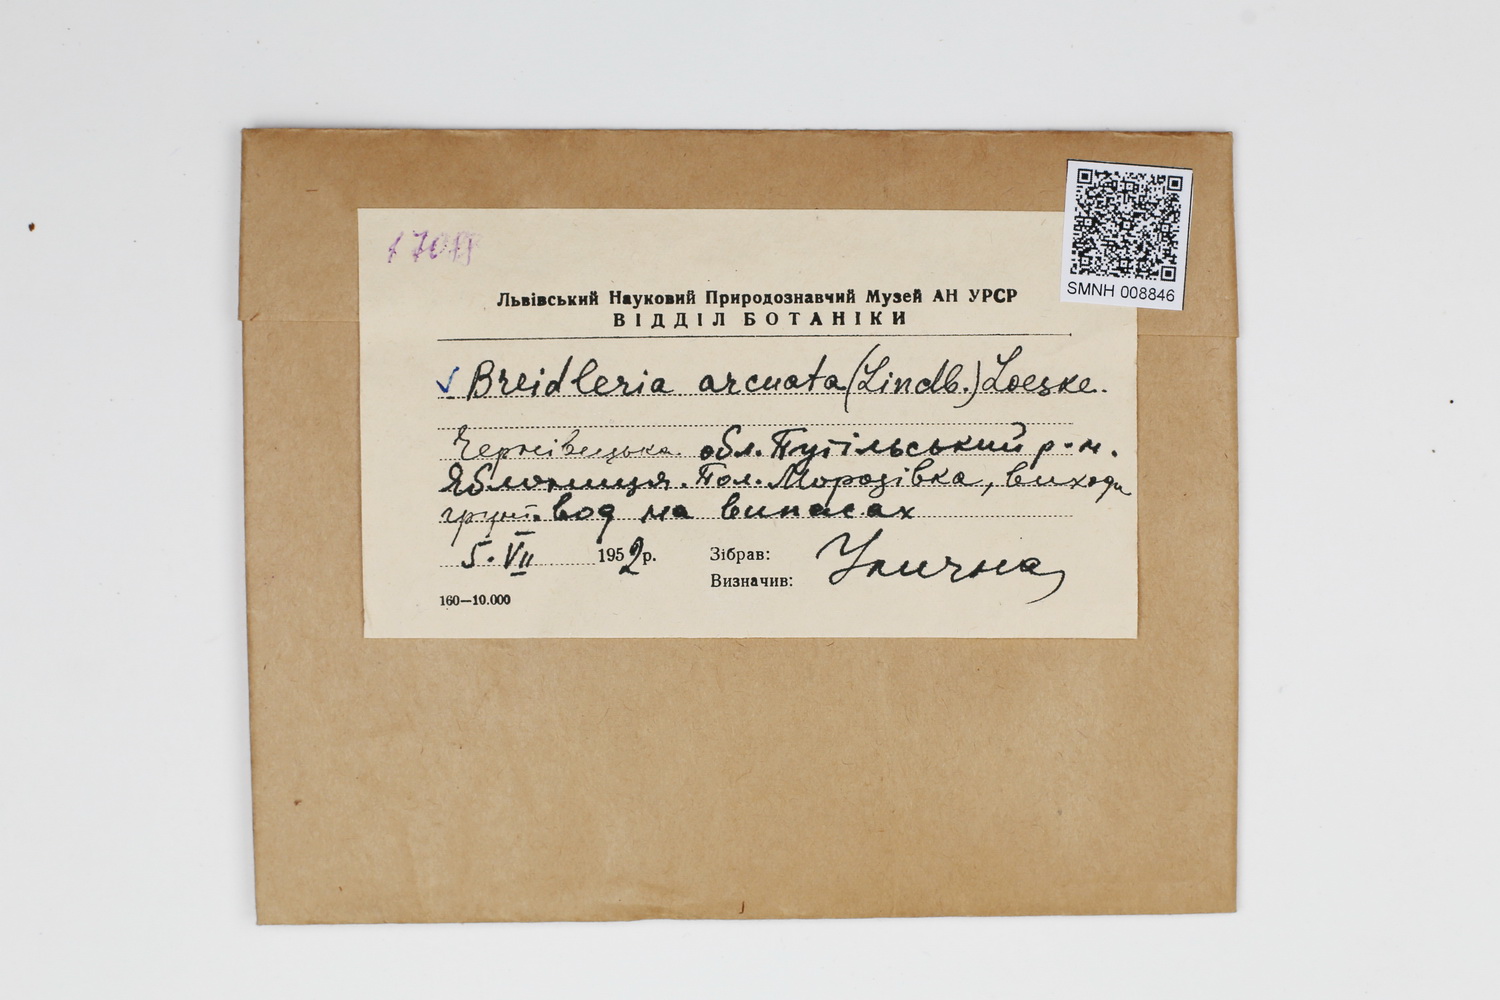 SMNH 008846
Львівський Науковий Природознавчий Музей АН УРСР
ВІДДІЛ БОТАНІКИ
√ Breidleria arcuata (Lindb.) Loeske.
Чернівецька обл. Путільський р-н.
Яблониця. Пол. Морозівка, виходи
грунт. вод на випасах
5. VII 1952 р. Зібрав: Улична
Визначив:
160—10.000